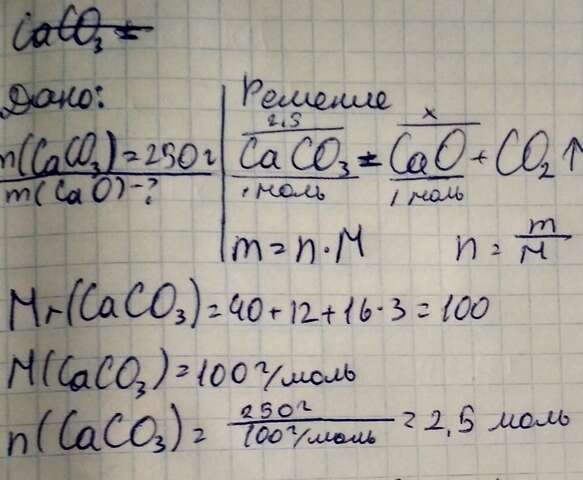 CaCO₃ =
Дано:
Решение
n(CaCO₃) = 250 г
m(CaO) - ?
2,5 x
CaCO₃ = CaO + CO₂ ↑
1 моль 1 моль
m = n · M n = m/M
Mr(CaCO₃) = 40 + 12 + 16 · 3 = 100
M(CaCO₃) = 100 г/моль
n(CaCO₃) = 250 г / 100 г/моль = 2,5 моль